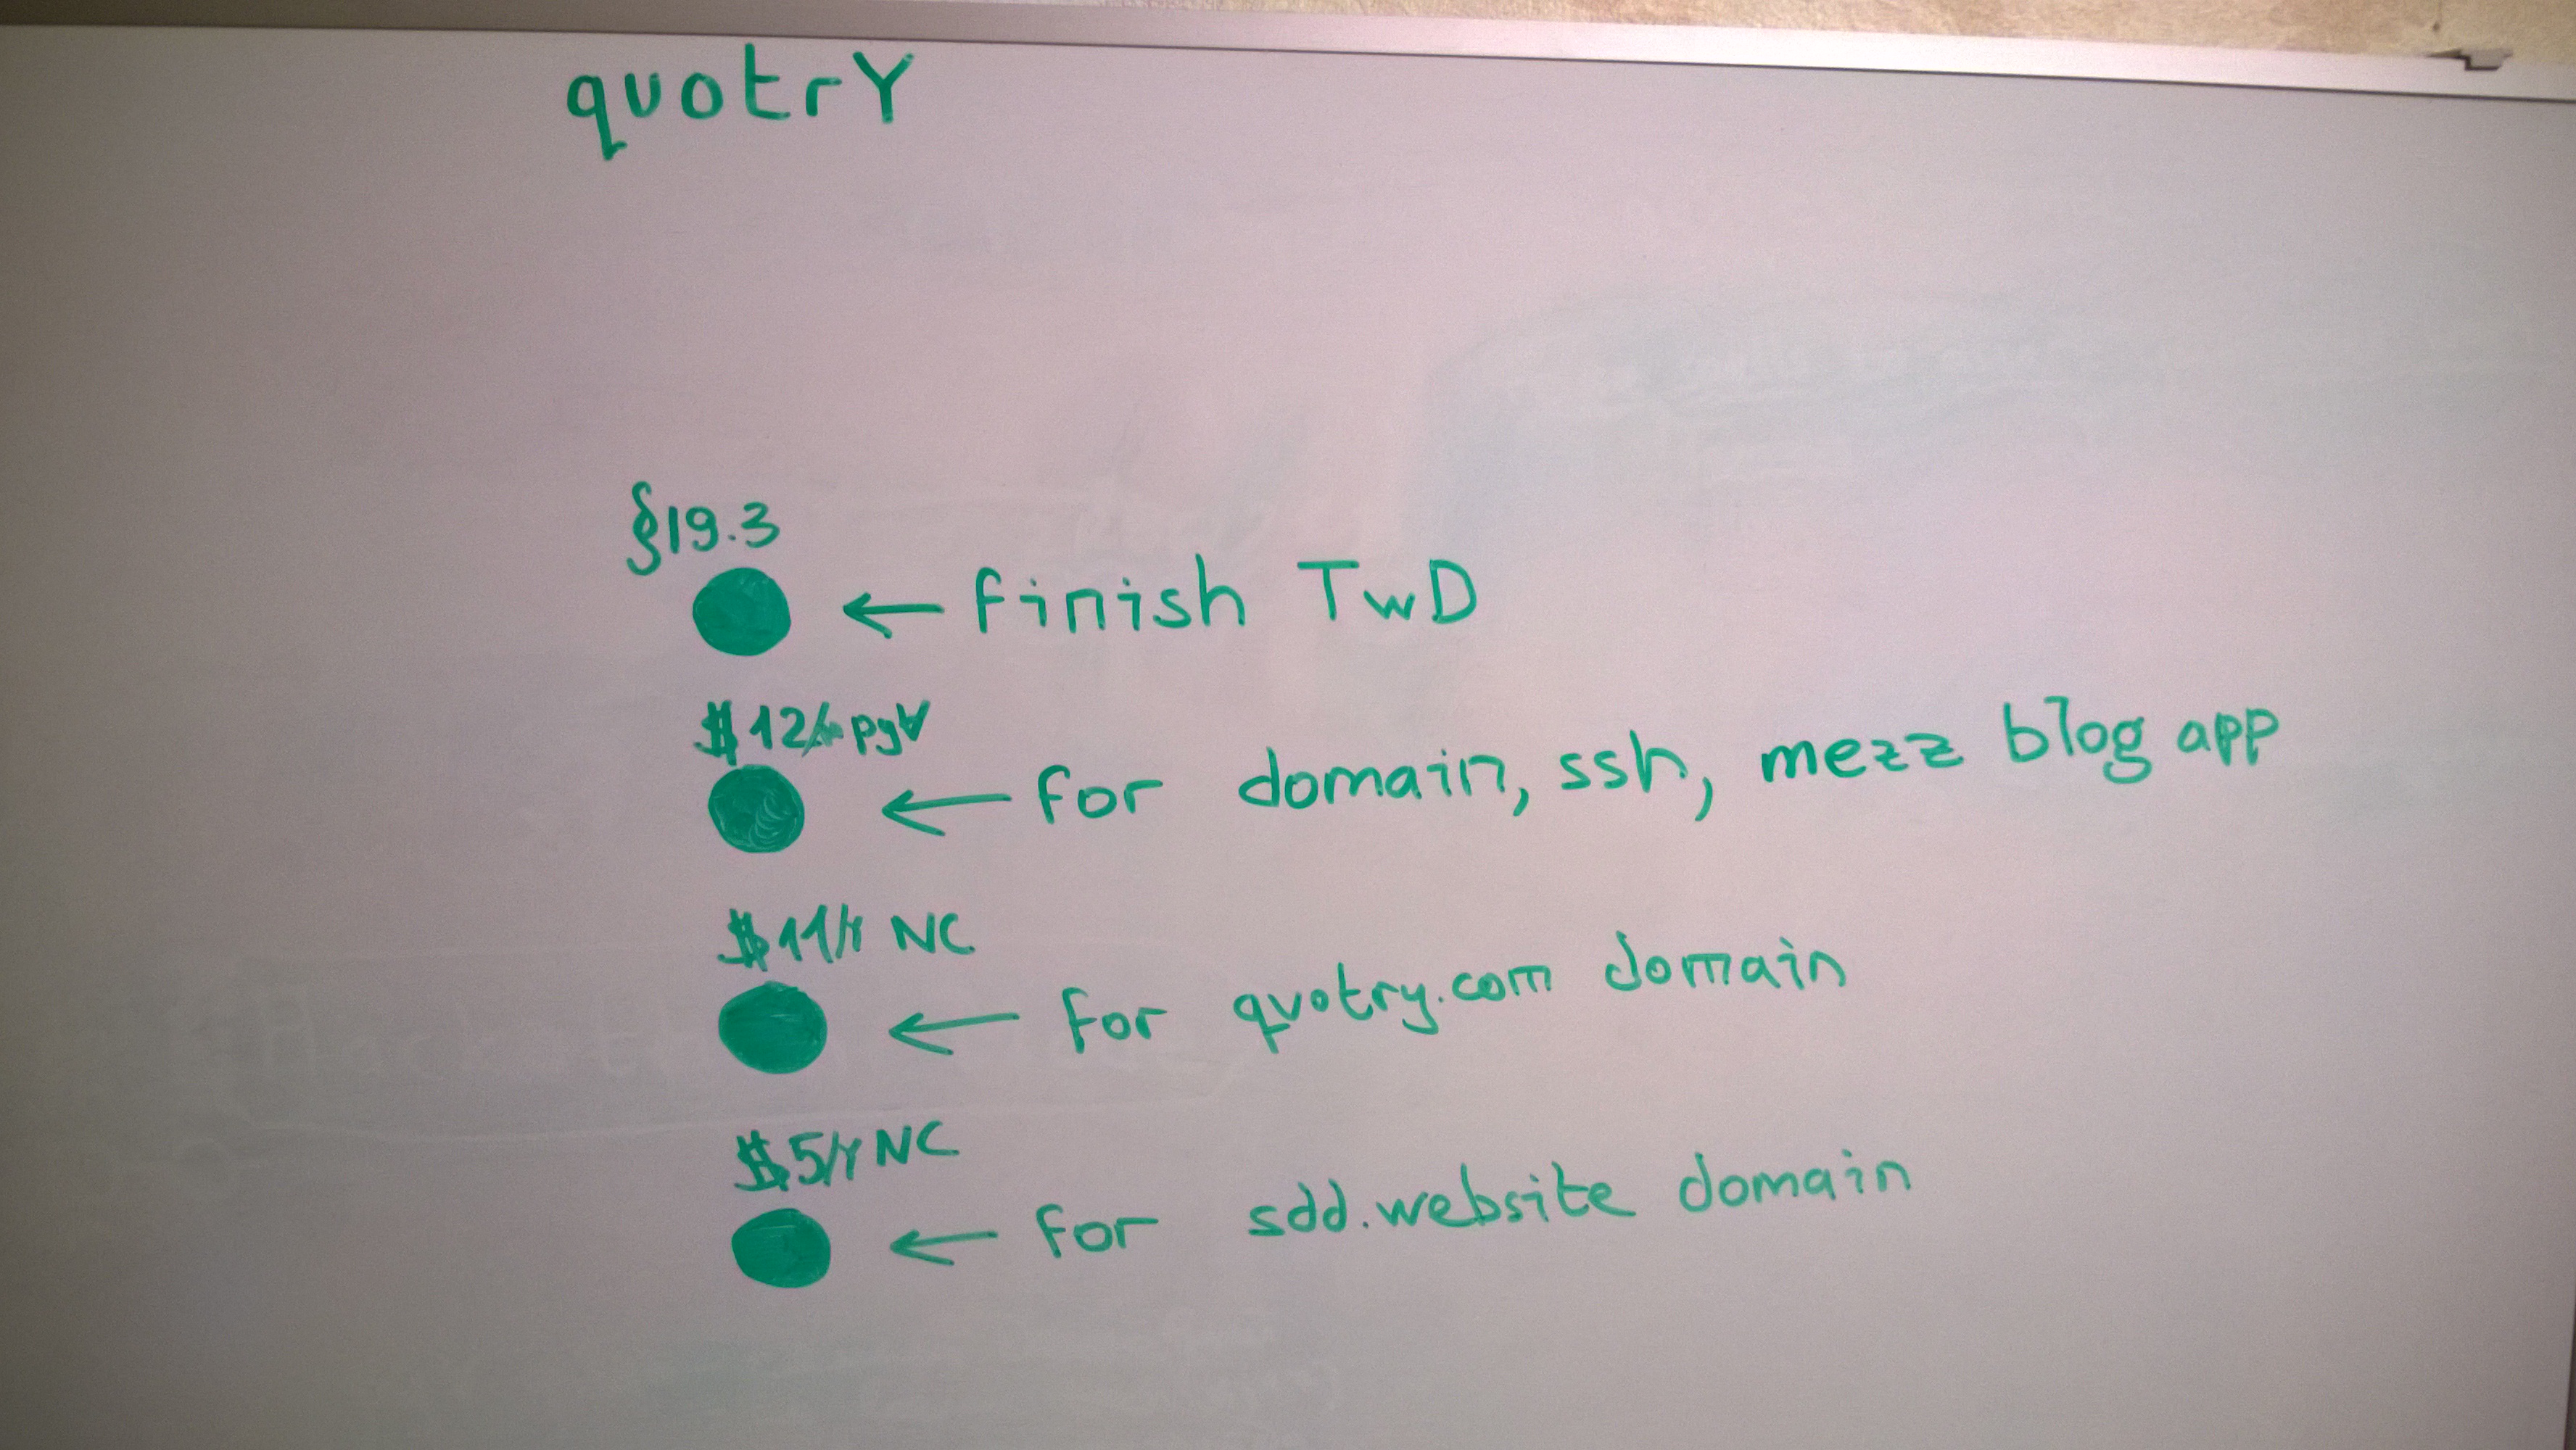 quotrY
§19.3
← finish TwD
$12
← for domain, ssh, mezz blog app
$11/Y NC
← for quotry.com domain
$5/Y NC
← for sdd.website domain